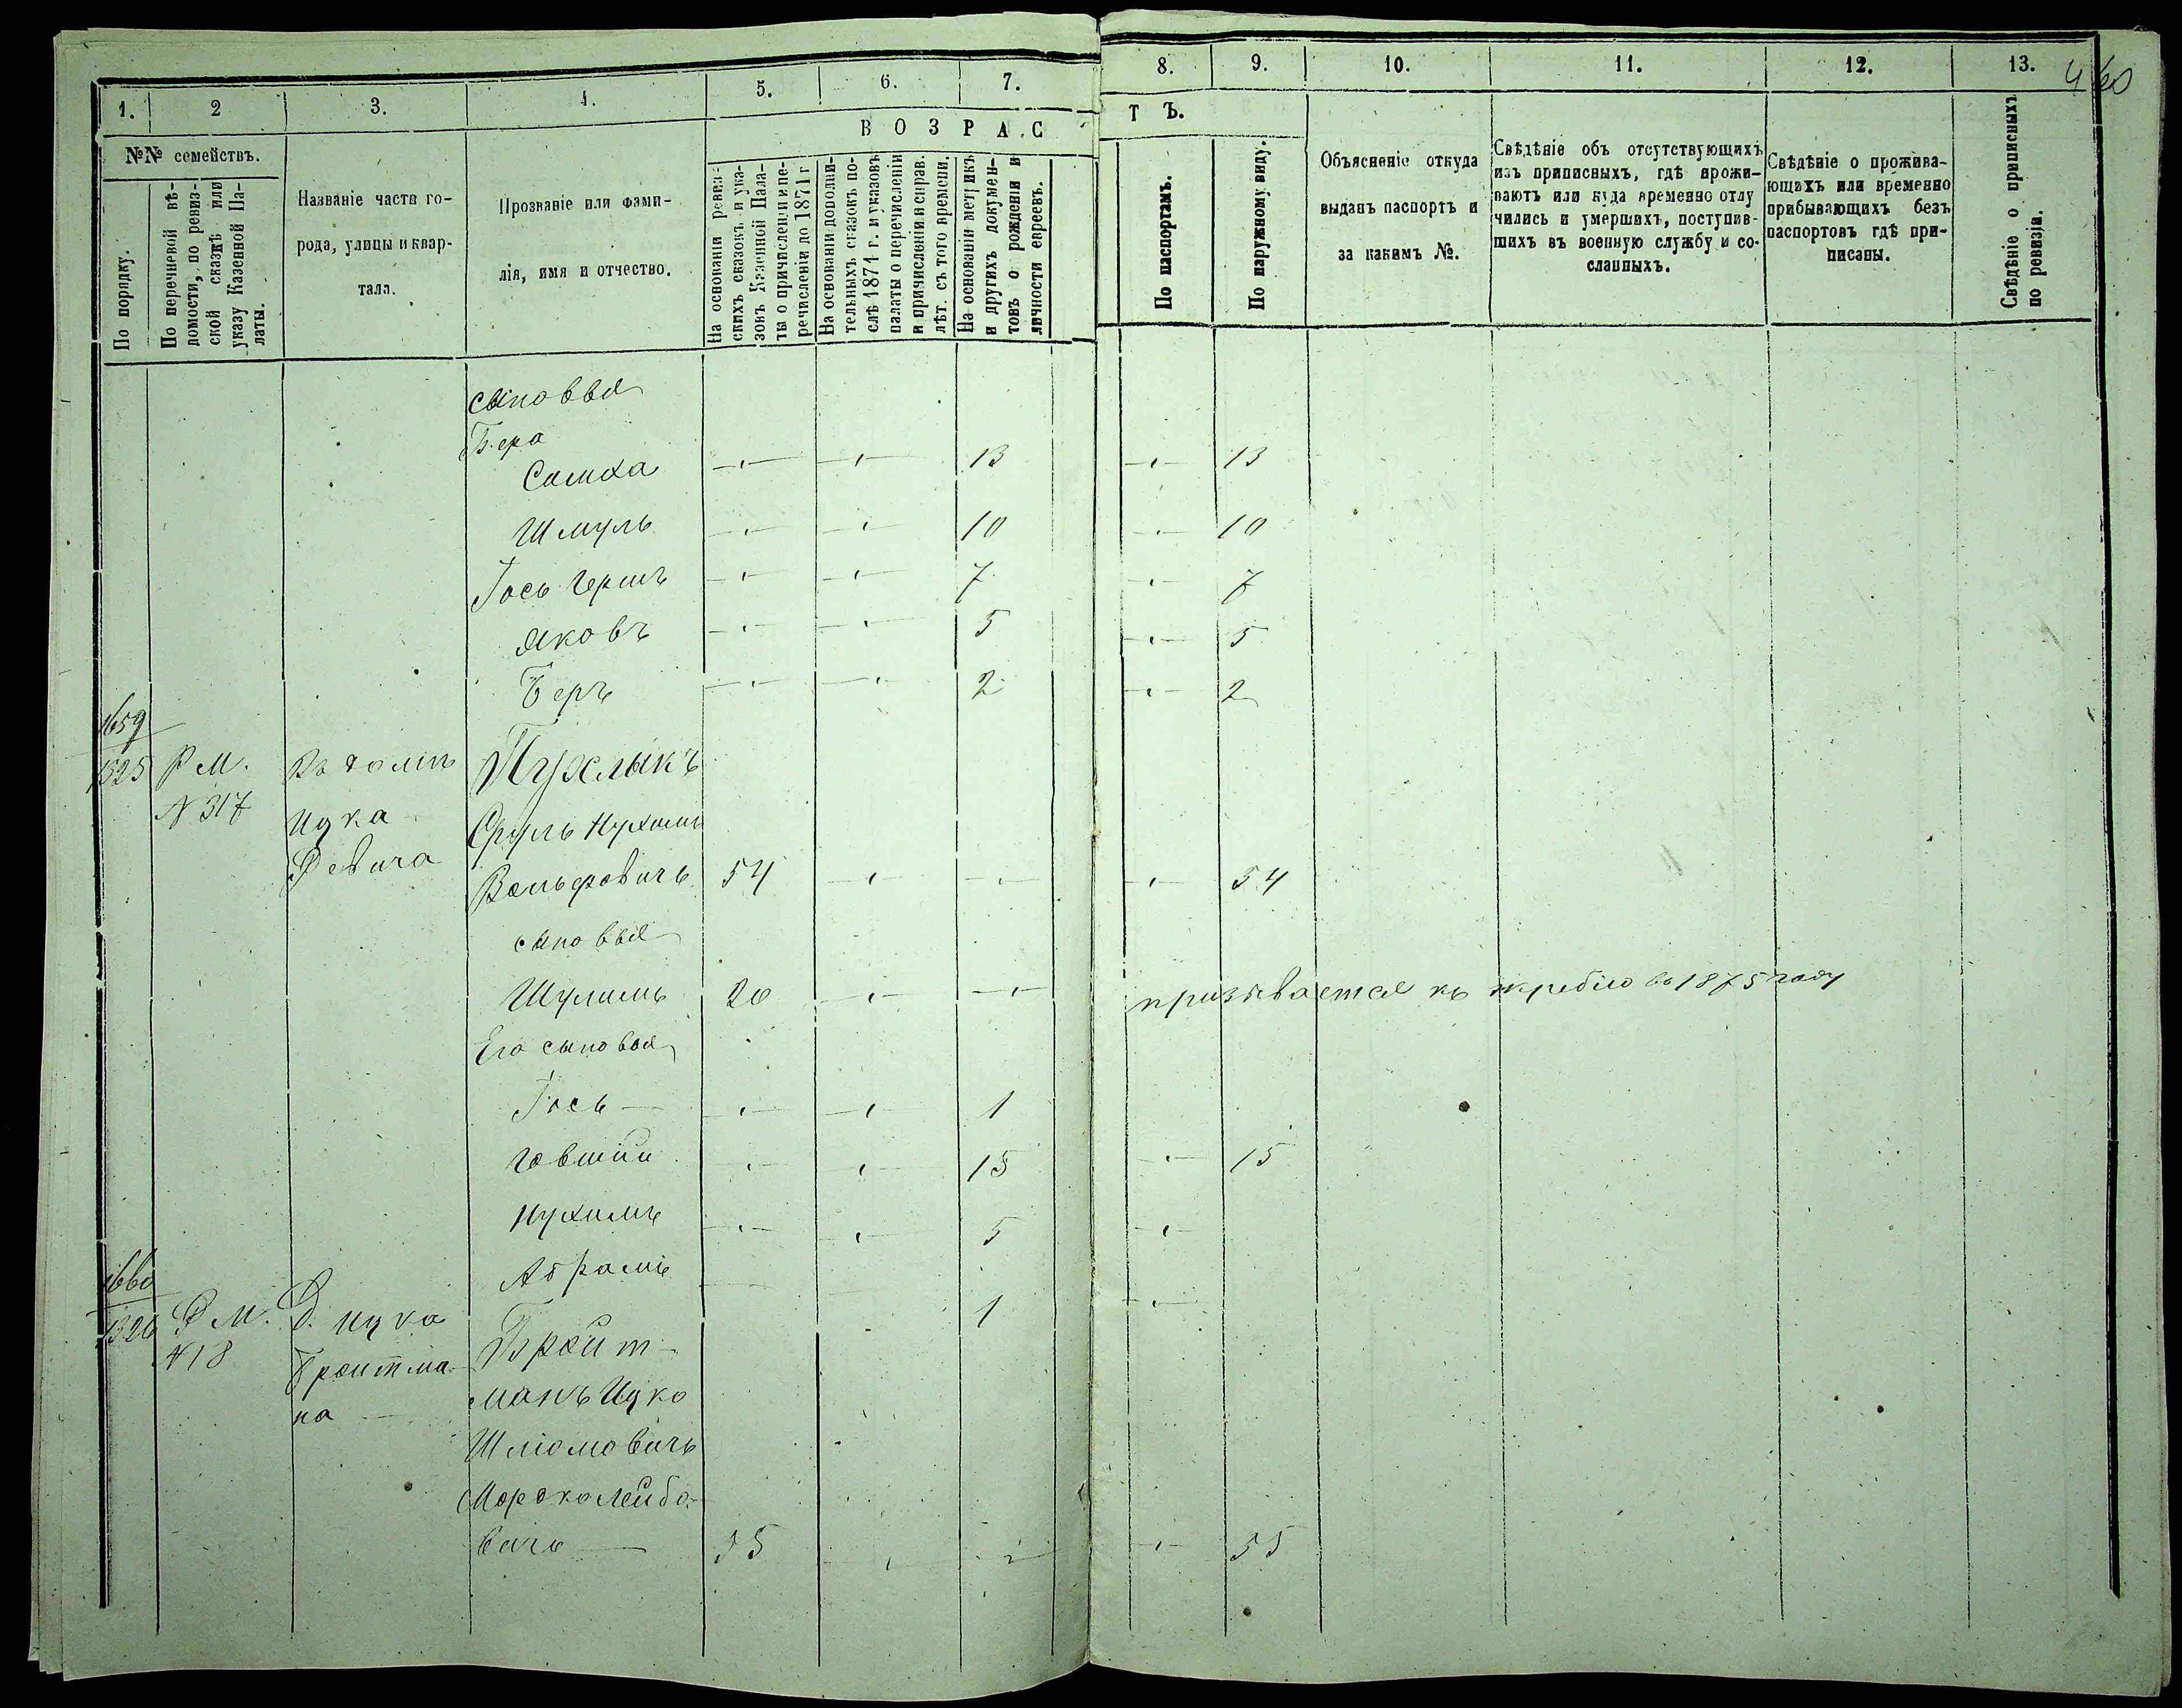 1. 2 3. 4. 5. 6. 7. 8. 9. 10. 11. 12. 13.
460
№№ семействъ.
По порядку.
По перечневой вѣ-
домости, по ревиз-
ской сказкѣ или
указу Казенной Па-
латы.
Названіе части го-
рода, улицы и квар-
тала.
Прозваніе или фами-
лія, имя и отчество.
ВОЗРАС
ТЪ.
На основаніи ревиз-
скихъ сказокъ и ука-
зовъ Казенной Пала-
ты о причисленіи и пе-
речисленіи до 1874 г
На основаніи дополни-
тельныхъ сказокъ по-
слѣ 1874 г. и указовъ
палаты о перечисленіи
и причисленіи и справ.
лѣт. съ того времени.
На основаніи метрикъ
и другихъ докумен-
товъ о рожденіи и
личности евреевъ.
По паспортамъ.
По наружному виду.
Объясненіе откуда
выданъ паспортъ и
за какимъ №.
Свѣдѣніе объ отсутствующихъ
изъ приписныхъ, гдѣ прожи-
ваютъ или куда временно отлу
чились и умершихъ, поступив-
шихъ въ военную службу и со-
сланныхъ.
Свѣдѣніе о прожива-
ющихъ или временно
прибывающихъ безъ
паспортовъ гдѣ при-
писаны.
Свѣдѣніе о приписныхъ
по ревизіи.
сыновья
Бера
Симха 13 13
Шмуль 10 10
Іось Гершъ 7 7
Яковъ 5 5
Беръ 2 2
1659
1325 Р М. Въ домѣ Пухлыкъ
№ 317 Ицка Сруль Нухимъ
Девича Вольфовичъ 54 54
сыновья
Шулимъ 20 призывается къ жребію въ 1875 году
Его сыновья
Іось 1
Говшій 15 15
Нухимъ 5
Абрамъ 1
1660
1326 Р М. Д. Ицка Бройт-
№ 18 Бройтма- манъ Ицко
на Шліомовичъ
Мордко Лейбо-
вичъ 55 55